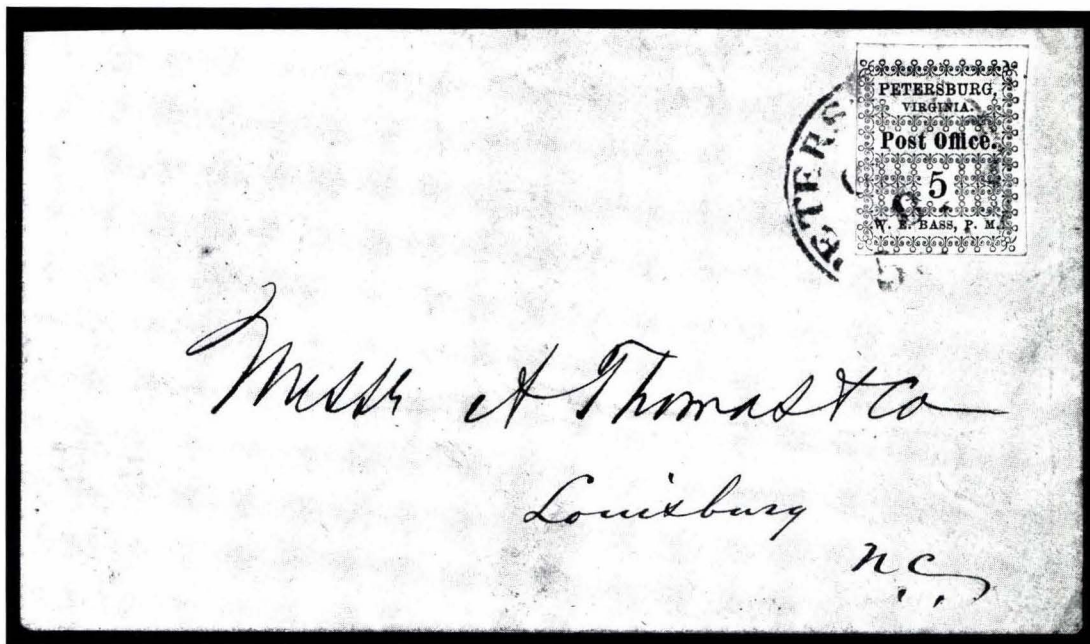 PETERSBURG,
VIRGINIA.
Post Office.
5
W. E. BASS, P. M.
PETERS
Messrs A Thomas & Co
Louisburg
N.C.